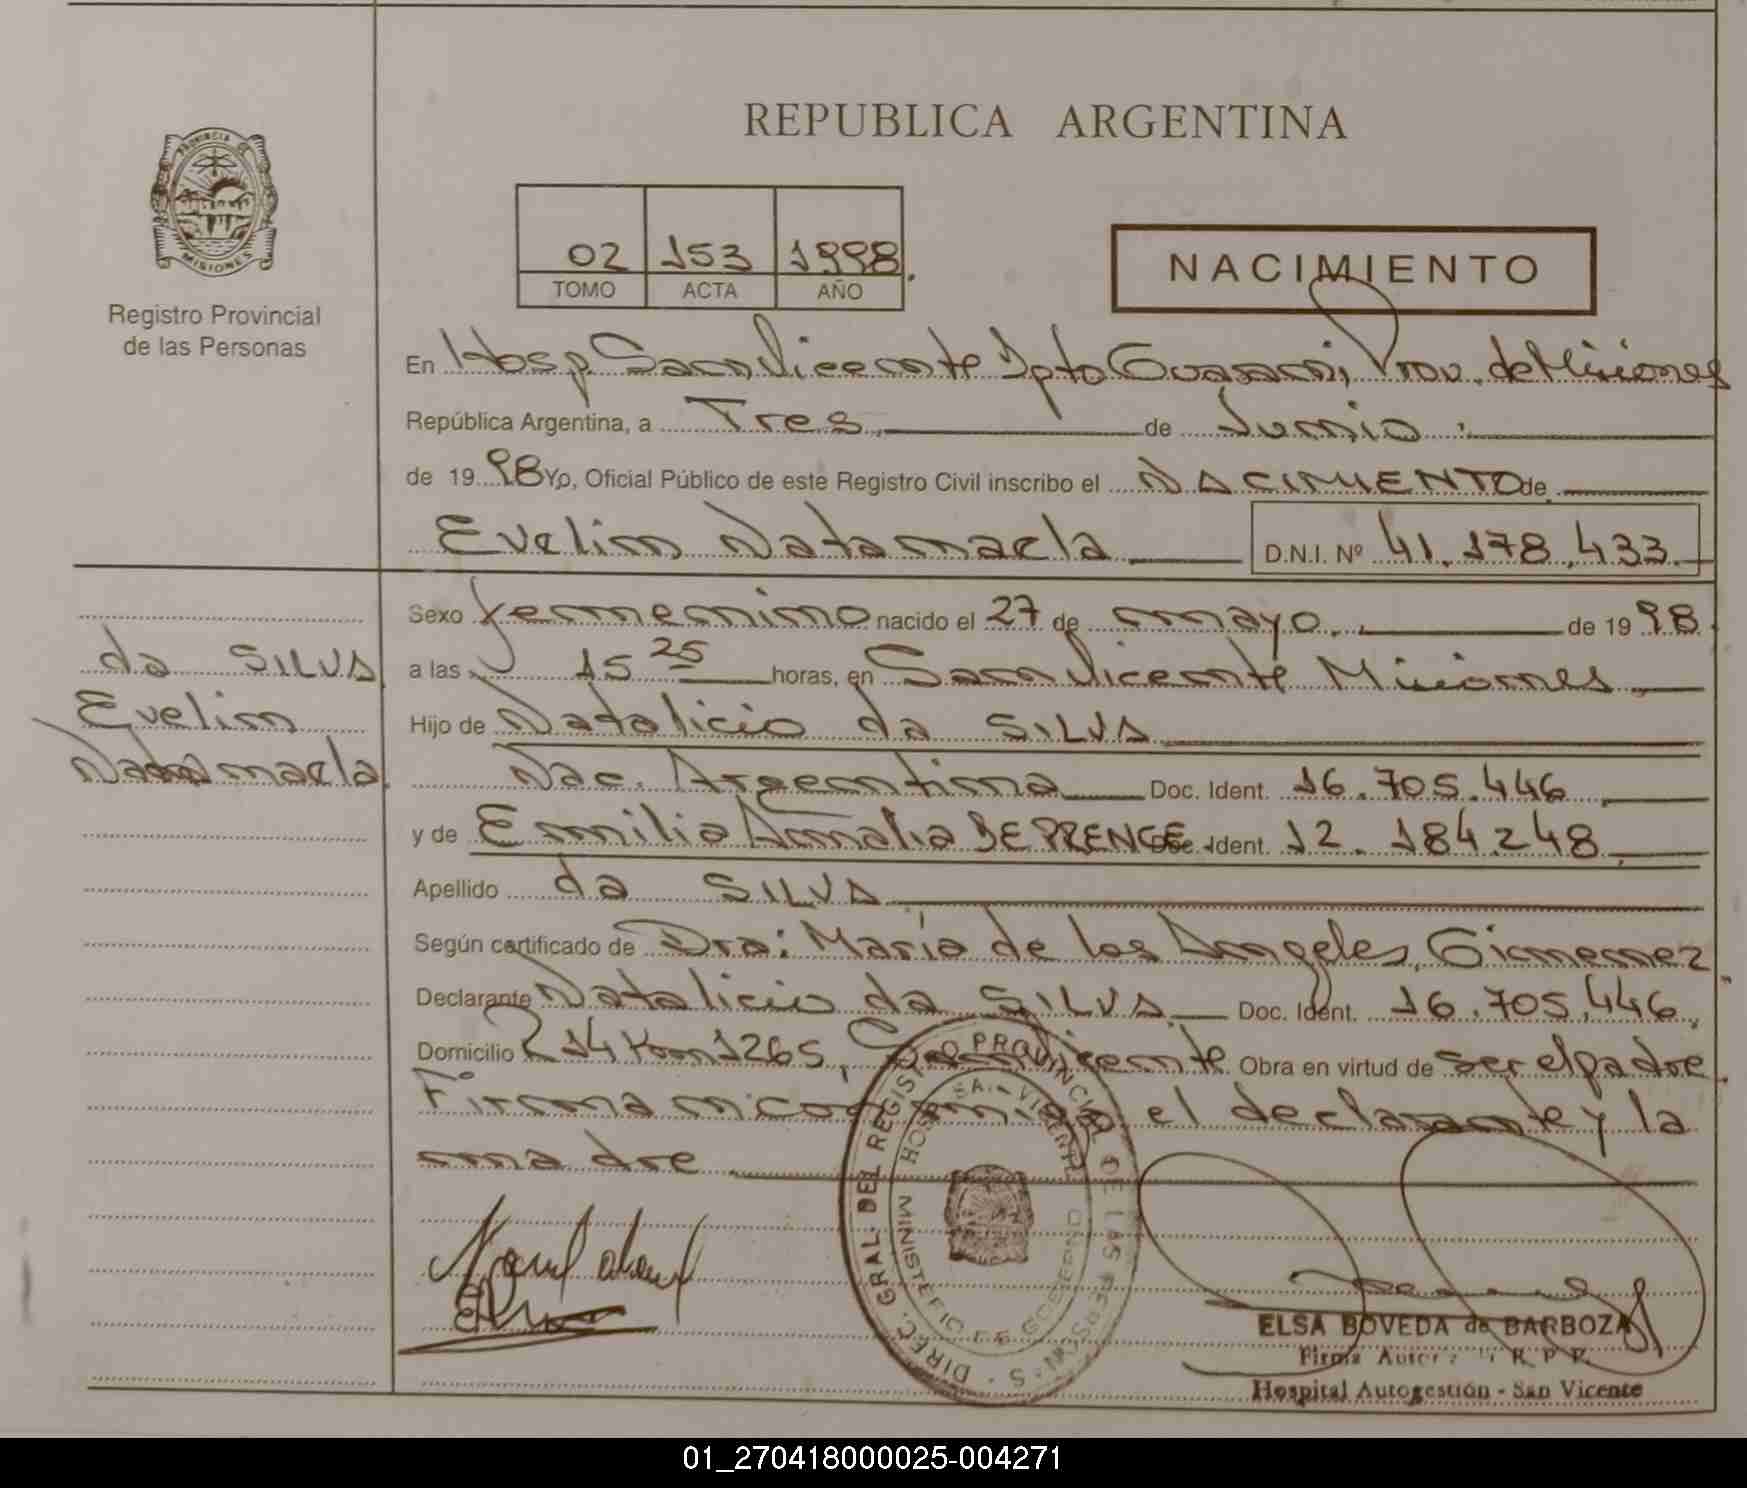 REPUBLICA ARGENTINA
PROVINCIA DE
MISIONES
Registro Provincial
de las Personas
02 153 1998.
TOMO ACTA AÑO
NACIMIENTO
En Hosp. San Vicente Dpto Guaraní, Prov. de Misiones
República Argentina, a Tres de Junio
de 19 98 Yo, Oficial Público de este Registro Civil inscribo el NACIMIENTO de
Evelin Natamaela D.N.I. Nº 41.178.433
Sexo femenino nacido el 27 de mayo de 19 98
a las 15 25 horas, en San Vicente Misiones
Hijo de Natalicio da SILVA
Nac. Argentina Doc. Ident. 16.705.446
y de Emilia Amalia BERRENGE Doc. Ident. 12.184.248
Apellido da SILVA
Según certificado de Dra: María de los Angeles Gimenez
Declarante Natalicio da SILVA Doc. Ident. 16.705.446
Domicilio R 14 Km 1265, San Vicente Obra en virtud de ser el padre
Firman conmigo el declarante y la
madre
da SILVA
Evelin
Natamaela
DIREC. GRAL. DEL REGISTRO PROVINCIAL DE LAS PERSONAS
HOSP. SAN VICENTE
MINISTERIO DE GOBIERNO
ELSA BOVEDA de BARBOZA
Firma Autor R P P.
Hospital Autogestión - San Vicente
01_270418000025-004271